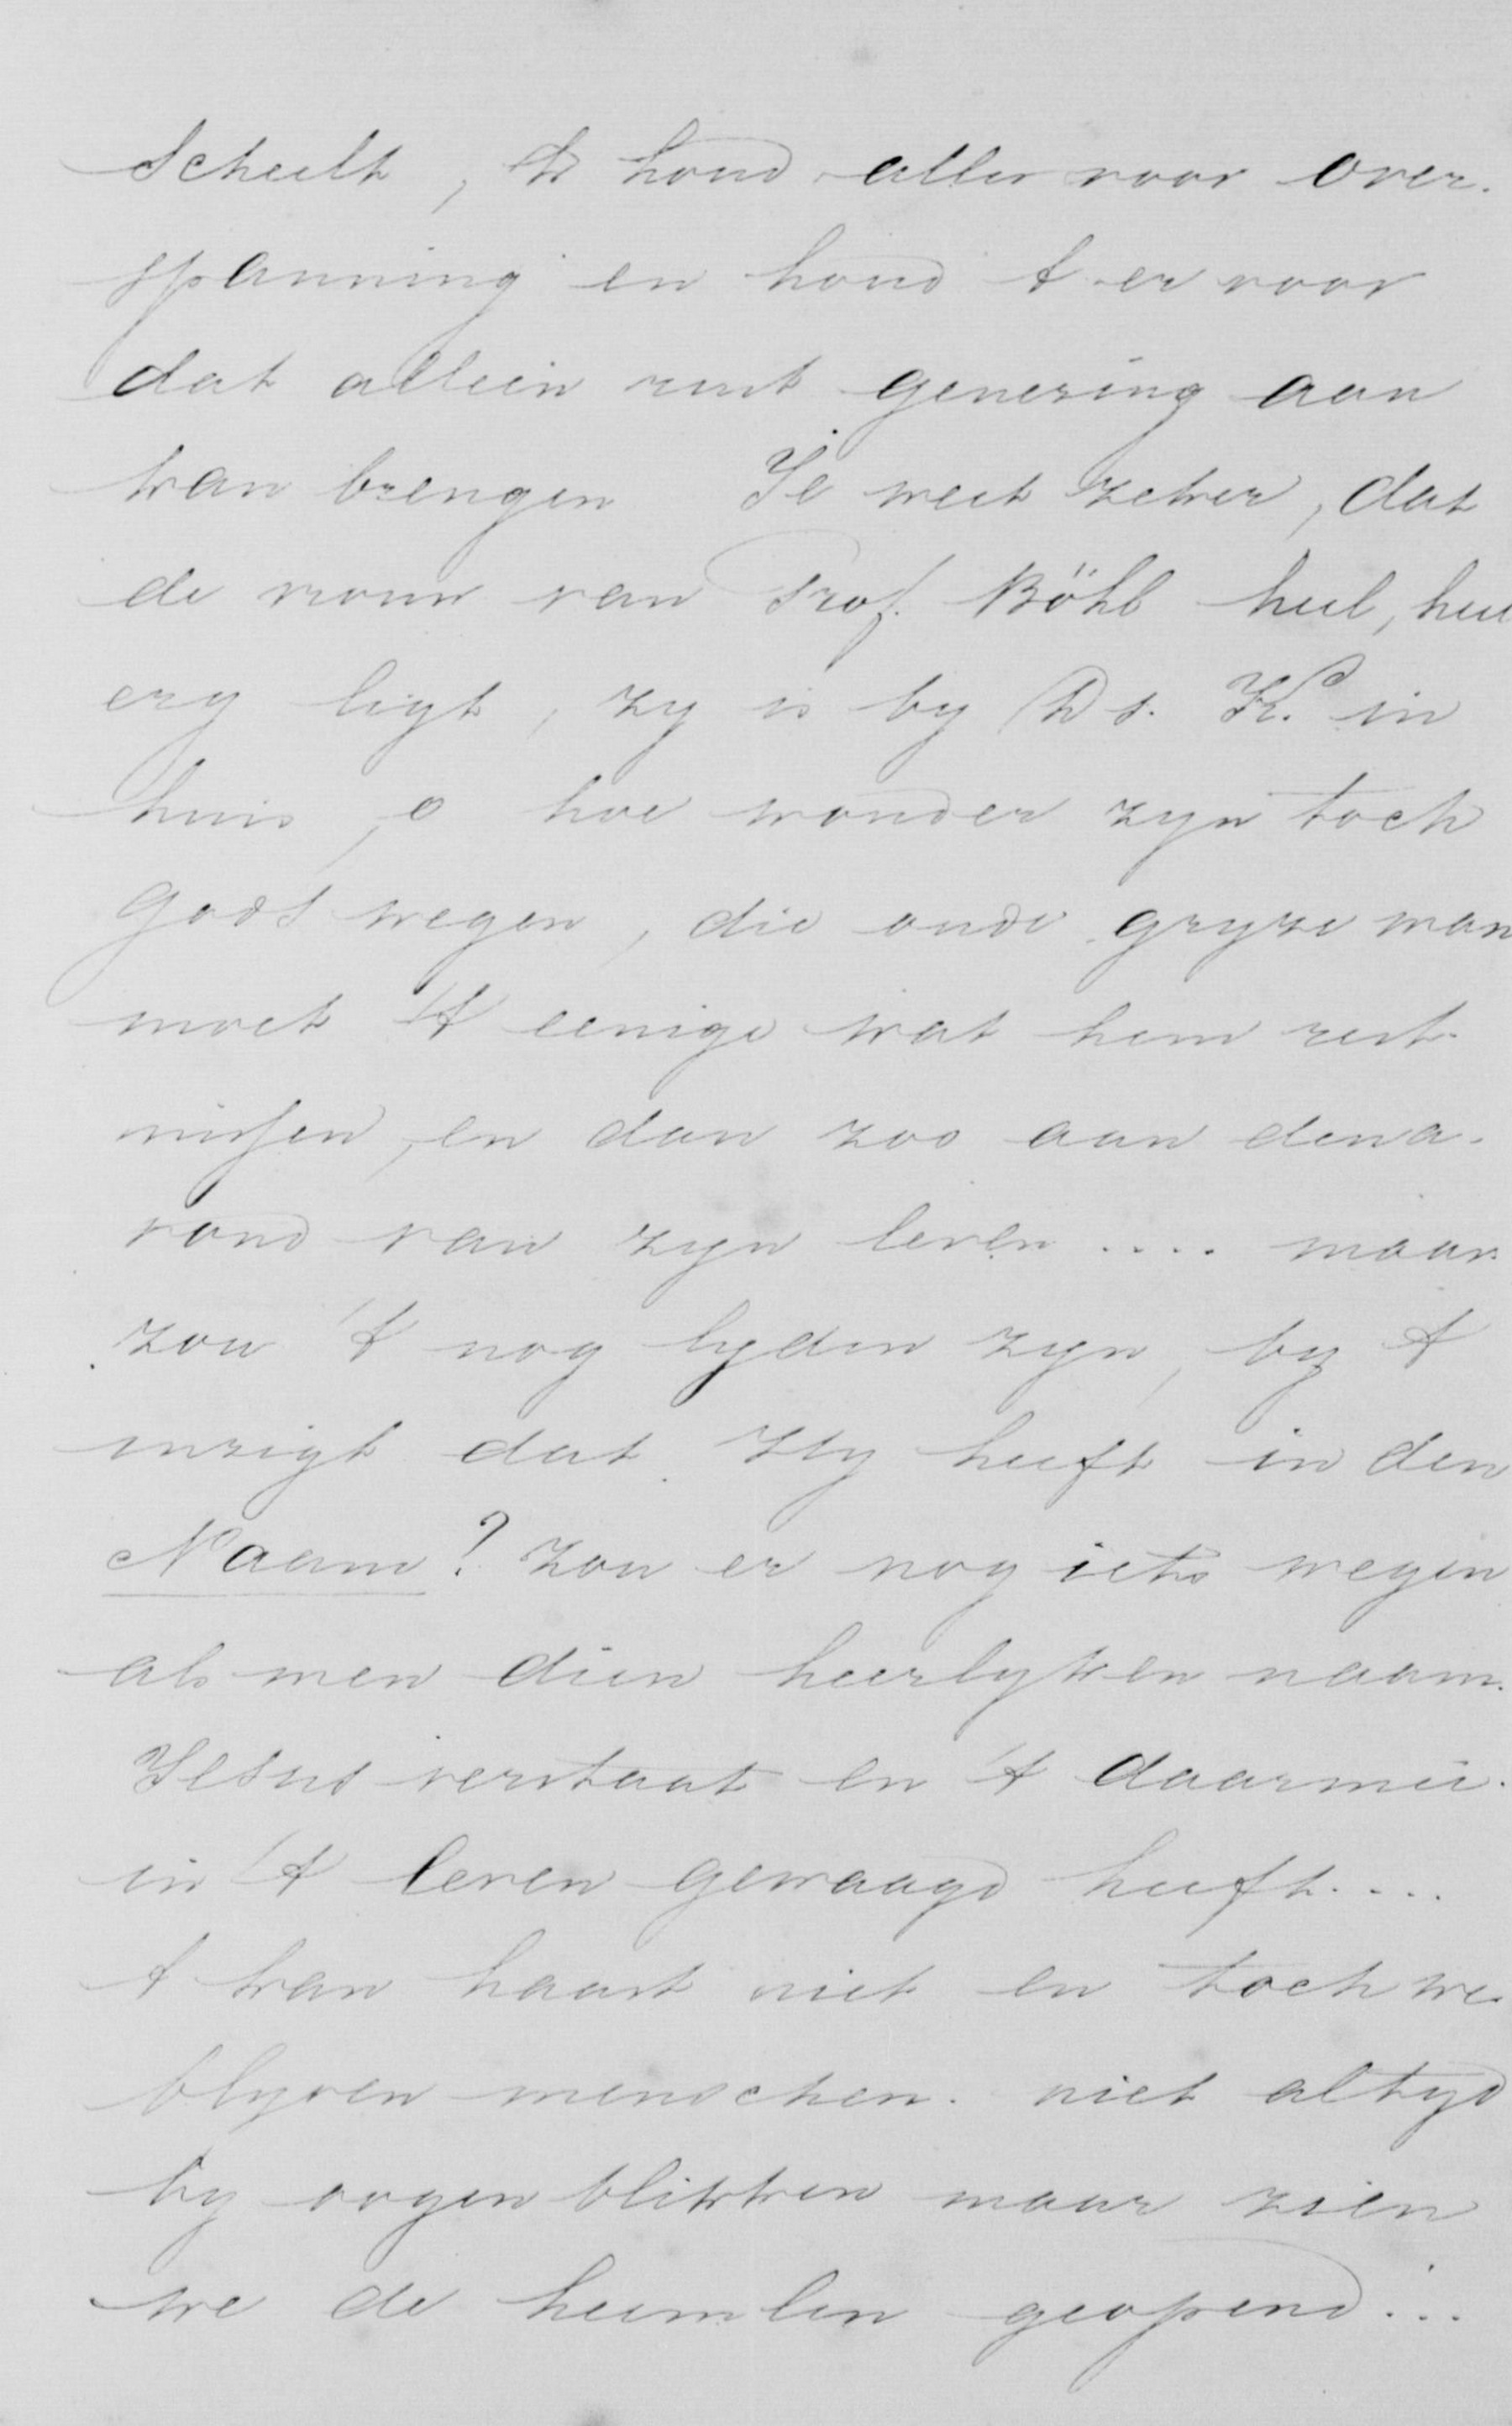 scheelt, ik houd alles voor over-
spanning en houd t er voor
dat alleen rust genezing aan
kan brengen Je weet zeker, dat
de vrouw van Prof. Böhl heel, heel
erg ligt, zy is by Ds. K. in
huis, o hoe wonder zyn toch
Gods wegen, die oude gryze man
moet 't eenige wat hem rest
missen, en dan zoo aan den a-
vond van zyn leven .... maar
zou 't nog lyden zyn, by 't
inzigt dat Hy heeft in den
Naam? zou er nog iets wegen
als men dien heerlyken naam
Jesus verstaat en 't daarmeê
in 't leven gewaagd heeft....
t kan haast niet en toch we
blyven menschen. niet altyd
by oogenblikken maar zien
we de heemlen geopend...